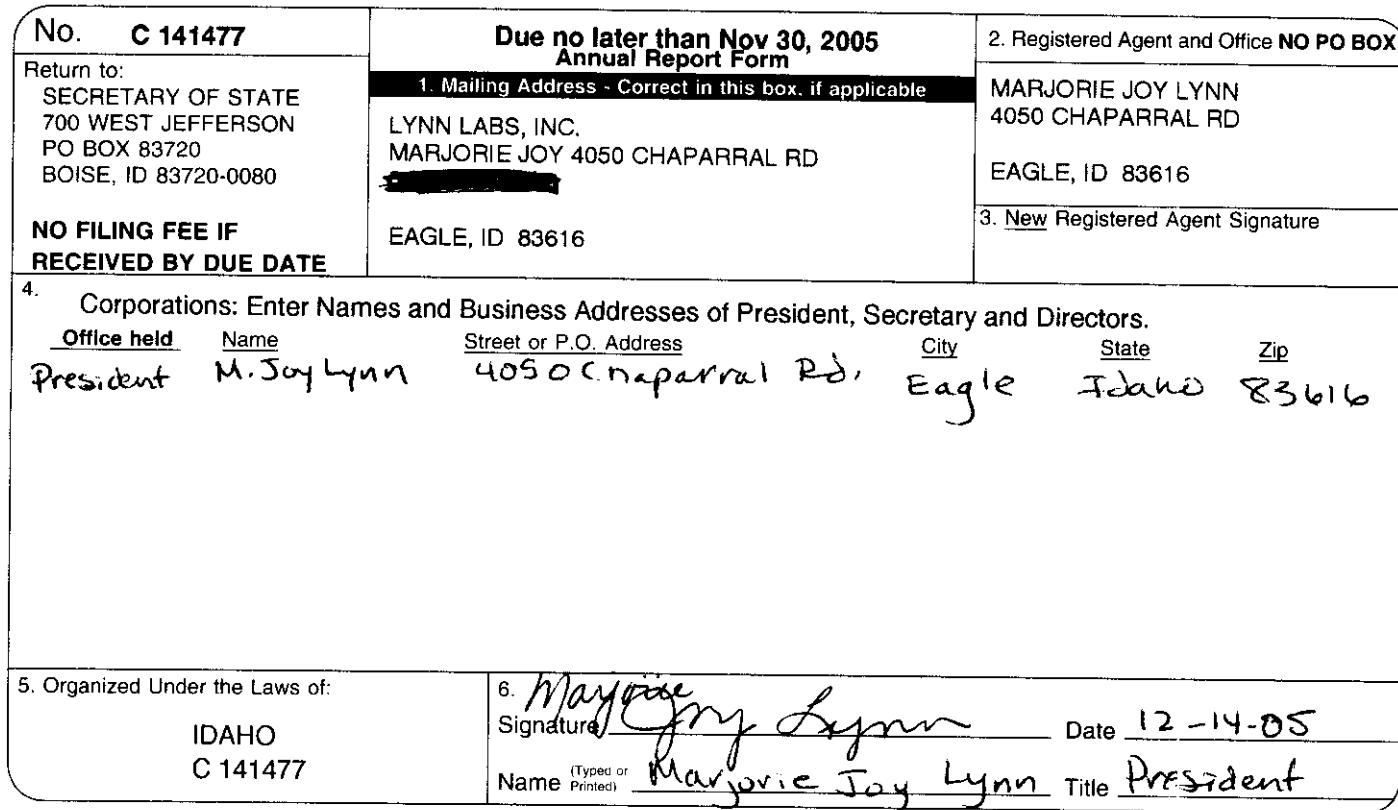 No. C 141477
Return to:
SECRETARY OF STATE
700 WEST JEFFERSON
PO BOX 83720
BOISE, ID 83720-0080
NO FILING FEE IF
RECEIVED BY DUE DATE
Due no later than Nov 30, 2005
Annual Report Form
1. Mailing Address - Correct in this box, if applicable
LYNN LABS, INC.
MARJORIE JOY 4050 CHAPARRAL RD
EAGLE, ID 83616
2. Registered Agent and Office NO PO BOX
MARJORIE JOY LYNN
4050 CHAPARRAL RD
EAGLE, ID 83616
3. New Registered Agent Signature
4.
Corporations: Enter Names and Business Addresses of President, Secretary and Directors.
Office held Name Street or P.O. Address City State Zip
President M. Joy Lynn 4050 Chaparral Rd. Eagle Idaho 83616
5. Organized Under the Laws of:
IDAHO
C 141477
6.
Signature Marjorie Joy Lynn Date 12-14-05
Name (Typed or Printed) Marjorie Joy Lynn Title President